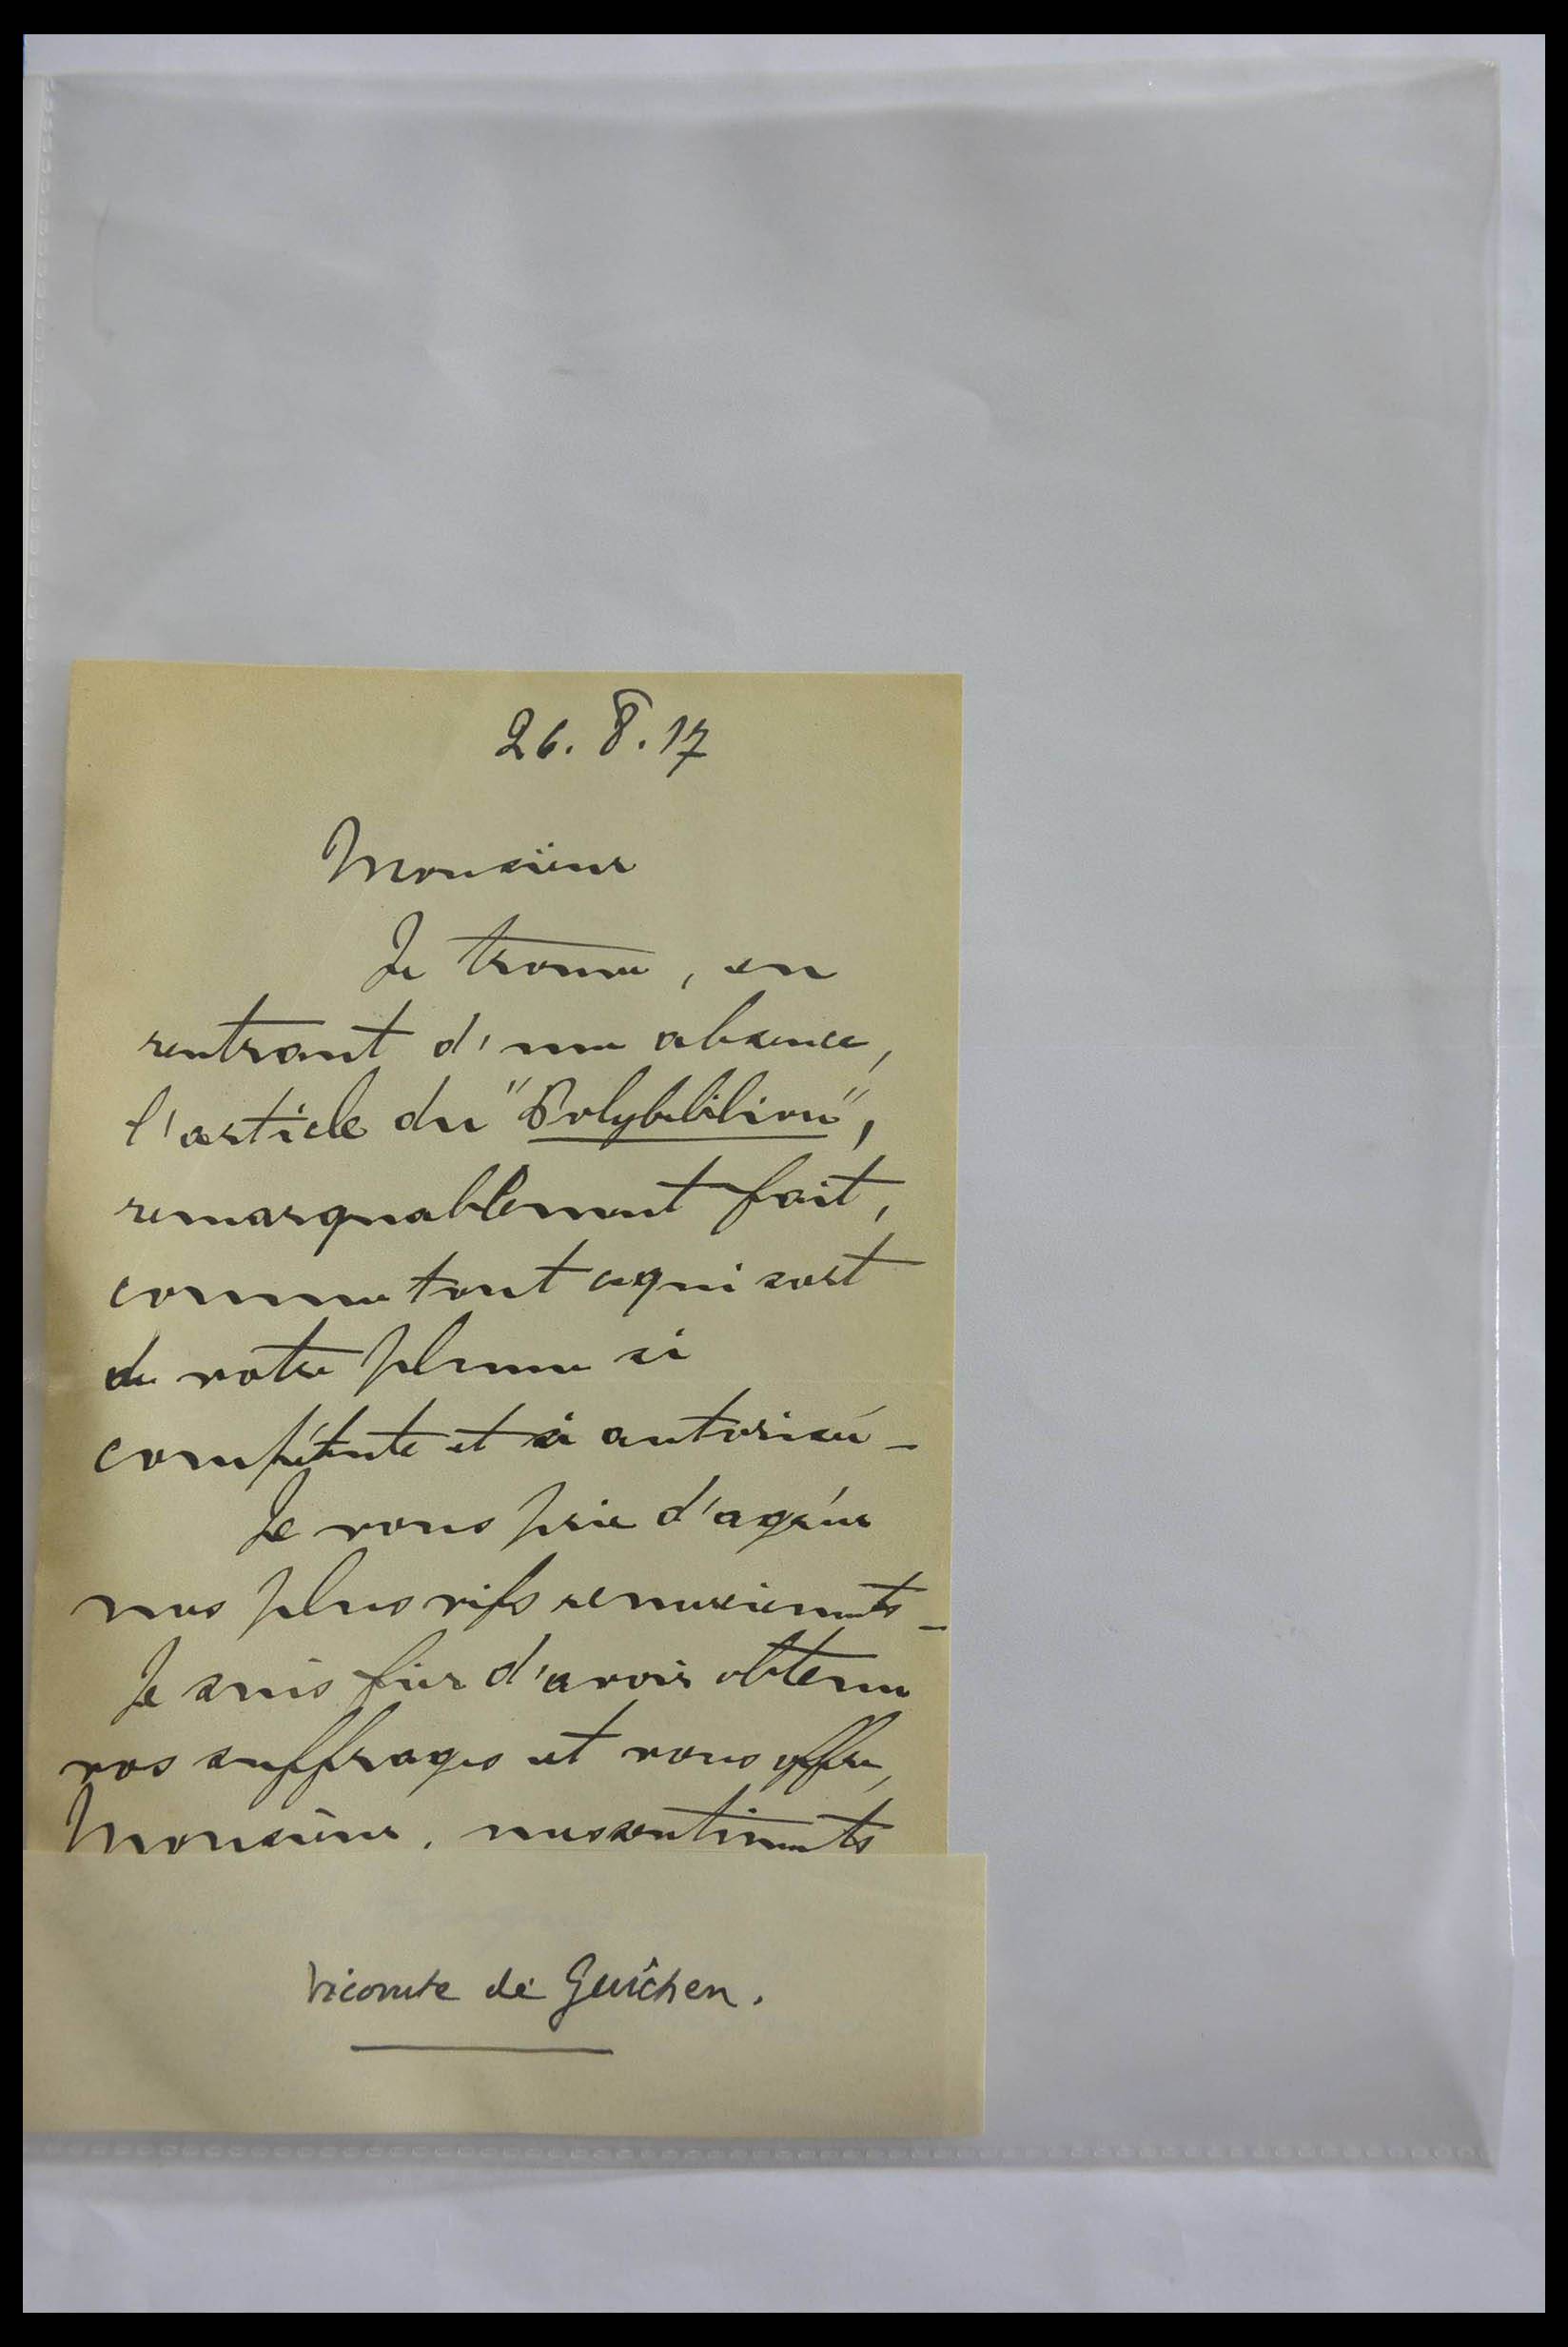 26. 8. 17
Monsieur
Je trouve, en
rentrant d'une absence,
l'article du "Polybiblion",
remarquablement fait,
comme tout ce qui sort
de votre plume si
compétente et si autorisée_
Je vous prie d'agréer
mes plus vifs remerciements_
Je suis fier d'avoir obtenu
vos suffrages et vous offre,
Monsieur, mes sentiments
Vicomte de Guichen.